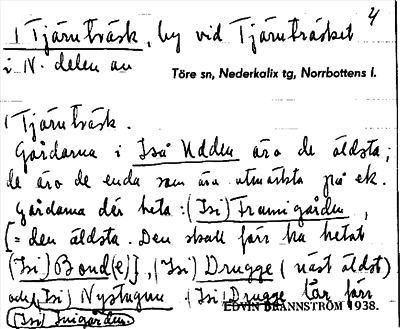 4
1 Tjärnträsk, by vid Tjärnträsket
i N. delen av
Töre sn, Nederkalix tg, Norrbottens l.
1 Tjärnträsk.
Gårdarna i Iså Udden äro de äldsta;
de äro de enda som äro utmärkta på ek.
Gårdarna där heta: (Isi) Framigården,
[= den äldsta. Den skall förr ha hetat
(Isi) Bond(e)], (Isi) Drugge (näst äldst)
och (Isi) Nystugun (Isi) Drugge lär förr
EDVIN BRÄNNSTRÖM 1938.
(Isi) Inigården.